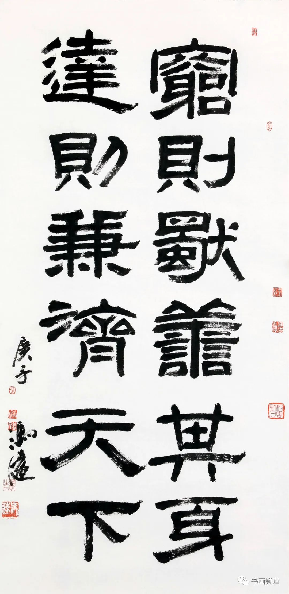 窮則獨善其身
達則兼濟天下
庚子